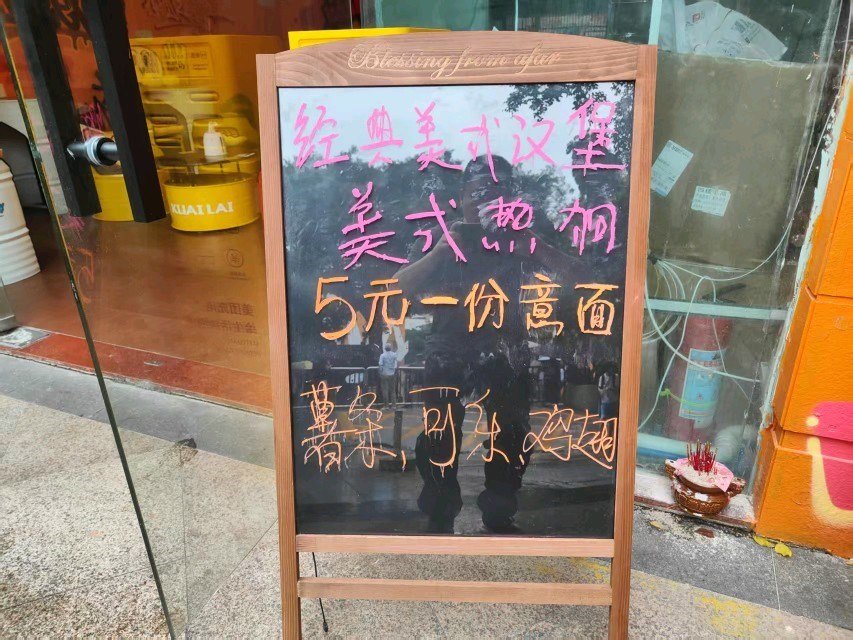 Blessing from afar
经典美式汉堡
美式热狗
5元一份意面
薯条,可乐,鸡翅
KUAI LAI